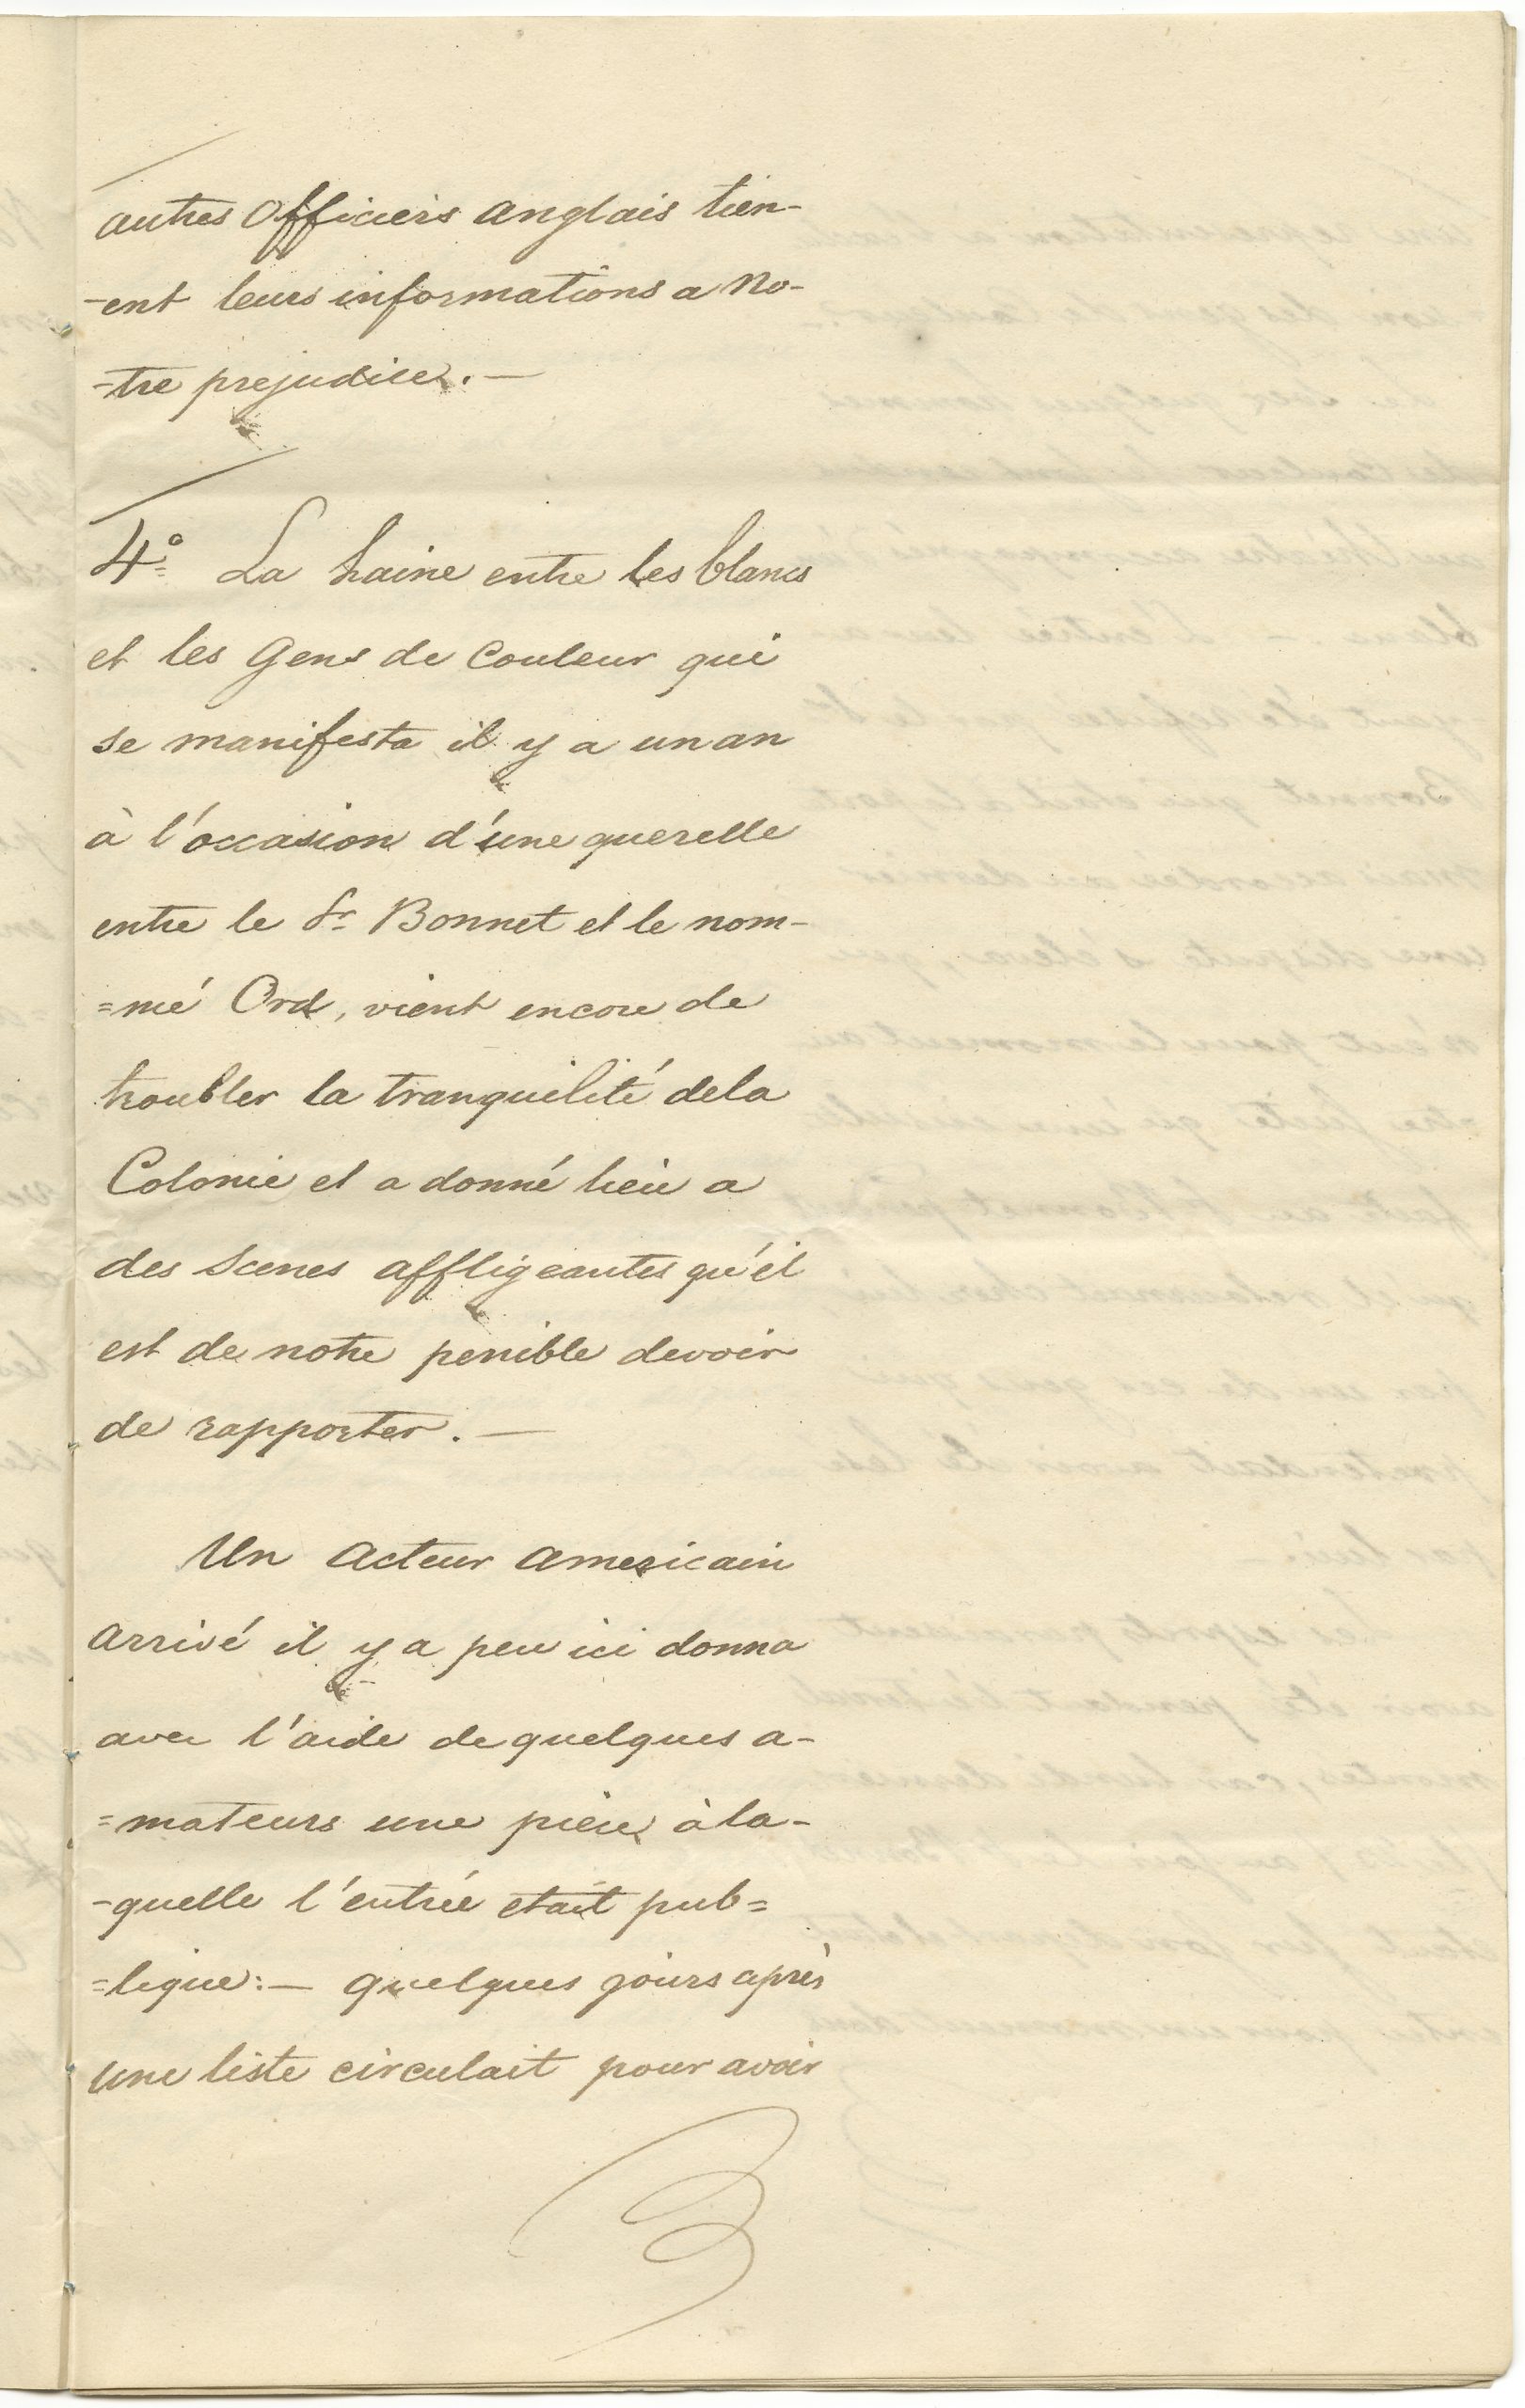 autres Officiers anglais tien-
-ent leurs informations a no-
-tre prejudice. —
4° La haine entre les blancs
et les Gens de Couleur qui
se manifesta il y a un an
à l'occasion d'une querelle
entre le Sr. Bonnet et le nom-
=mé Ord, vient encore de
troubler la tranquilité dela
Colonie et a donné lieu a
des Scenes affligeantes qu'il
est de notre penible devoir
de rapporter. —
Un Acteur Americain
arrivé il y a peu ici donna
avec l'aide de quelques a-
=mateurs une pièce à la-
-quelle l'entrée etait pub=
=lique:— quelques jours après
une liste circulait pour avoir